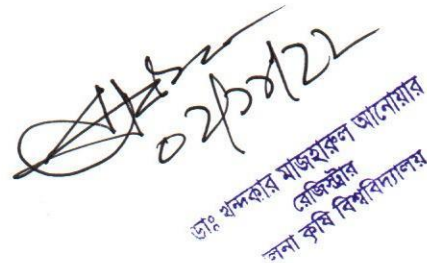 ০২/১১/২২
ডাঃ খন্দকার মাজহারুল আনোয়ার
রেজিস্ট্রার
লনা কৃষি বিশ্ববিদ্যালয়